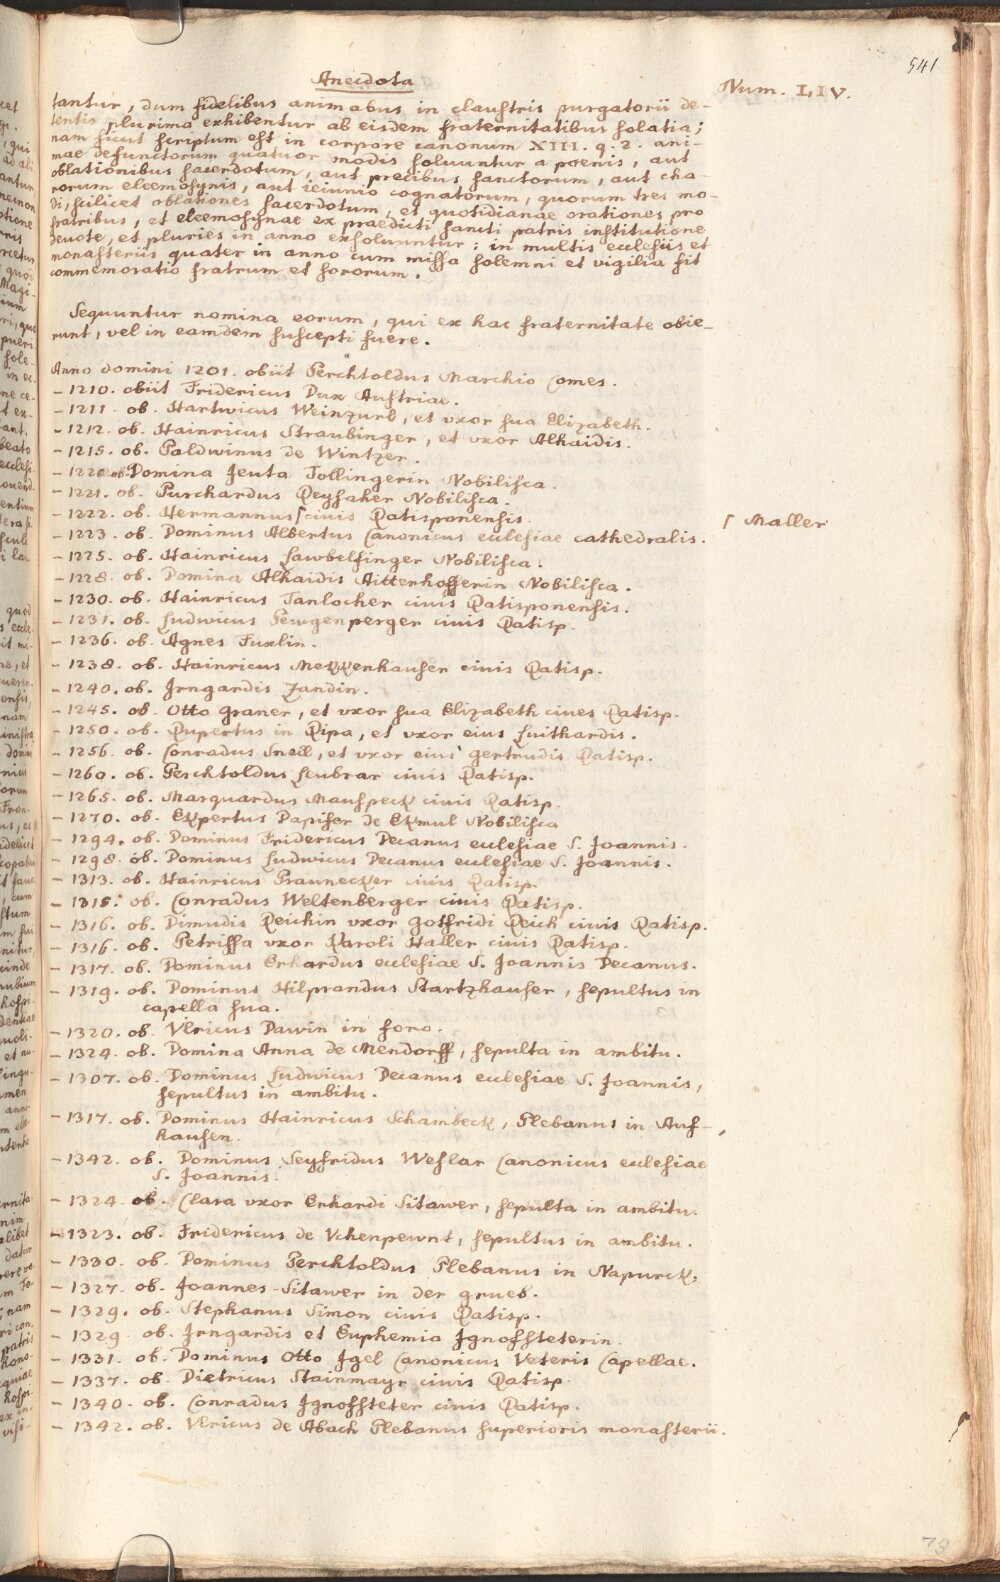 541
Anecdota
Num. LIV.
tantur, dum fidelibus animabus in claustris purgatorii de-
tentis plurima exhibentur ab eisdem fraternitatibus solatia;
nam sicut scriptum est in corpore canonum XIII. q. 2. ani-
mae defunctorum quatuor modis soluuntur a poenis, aut
oblationibus sacerdotum, aut precibus sanctorum, aut cha-
rorum eleemosynis, aut ieiunio cognatorum, quorum tres mo-
di, scilicet oblationes sacerdotum, et quotidianae orationes pro
fratribus, et eleemosynae ex praedicti sancti patris institutione
deuote, et pluries in anno exsoluuntur: in multis ecclesiis et
monasteriis quater in anno cum missa solemni et vigilia sit
commemoratio fratrum et sororum.
Sequuntur nomina eorum, qui ex hac fraternitate obie-
runt, vel in eamdem suscepti fuere.
Anno domini 1201. obiit Perchtoldus Marchio Comes.
- 1210. obiit Fridericus Dux Austriae.
- 1211. ob. Hartwicus Weinzurl, et vxor sua Elizabeth.
- 1212. ob. Hainricus Straubinger, et vxor Alhaidis.
- 1215. ob. Paldwinus de Wintzer.
- 1220. ob. Domina Jeuta Tollingerin Nobilisca.
- 1221. ob. Purchardus Reysaher Nobilisca.
- 1222. ob. Hermannus ⌈ civis Ratisponensis.
⌈ Maller
- 1223. ob. Dominus Albertus Canonicus ecclesiae cathedralis.
- 1225. ob. Hainricus Sawbelfinger Nobilisca.
- 1228. ob. Domina Alhaidis Aittenhofferin Nobilisca.
- 1230. ob. Hainricus Tanlocher ciuis Ratisponensis.
- 1231. ob. Ludwicus Pewgenperger ciuis Ratisp.
- 1236. ob. Agnes Fuxlin.
- 1238. ob. Hainricus Mekkenhauser ciuis Ratisp.
- 1240. ob. Jrngardis Zandin.
- 1245. ob. Otto graner, et vxor sua Elizabeth ciues Ratisp.
- 1250. ob. Rupertus in Ripa, et vxor eius Luithardis.
- 1256. ob. Conradus Snell, et vxor eius gertrudis Ratisp.
- 1260. ob. Perchtoldus Leubrar ciuis Ratisp.
- 1265. ob. Marquardus Mauspeck ciuis Ratisp.
- 1270. ob. Ekpertus Dapifer de Ekmul Nobilisca
- 1294. ob. Dominus Fridericus Decanus ecclesiae S. Joannis.
- 1298. ob. Dominus Ludwicus Decanus ecclesiae S. Joannis.
- 1313. ob. Hainricus Praunecker ciuis Ratisp.
- 1315. ob. Conradus Weltenberger ciuis Ratisp.
- 1316. ob. Dimudis Reichin vxor gotfridi Reich ciuis Ratisp.
- 1316. ob. Petrissa vxor Karoli Haller ciuis Ratisp.
- 1317. ob. Dominus Erhardus ecclesiae S. Joannis Decanus.
- 1319. ob. Dominus Hilprandus Startzhauser, sepultus in
capella sua.
- 1320. ob. Vlricus Dawin in foro.
- 1324. ob. Domina Anna de Mendorff, sepulta in ambitu.
- 1307. ob. Dominus Ludwicus Decanus ecclesiae S. Joannis,
sepultus in ambitu.
- 1317. ob. Dominus Hainricus Schambeck, Plebanus in Auf-
hausen.
- 1342. ob. Dominus Seyfridus Weslar Canonicus ecclesiae
S. Joannis.
- 1324. ob. Clara vxor Erhardi Sitawer, sepulta in ambitu.
- 1323. ob. Fridericus de Vchenpewnt, sepultus in ambitu.
- 1330. ob. Dominus Perchtoldus Plebanus in Napurck.
- 1327. ob. Joannes Sitawer in der grueb.
- 1329. ob. Stephanus Simon ciuis Ratisp.
- 1329. ob. Jrngardis et Euphemia Jgnofsteterin.
- 1331. ob. Dominus Otto Jgel Canonicus Veteris Capellae.
- 1337. ob. Dietricus Stainmayr ciuis Ratisp.
- 1340. ob. Conradus Jgnofsteter ciuis Ratisp.
- 1342. ob. Vlricus de Abach Plebanus superioris monasterii.